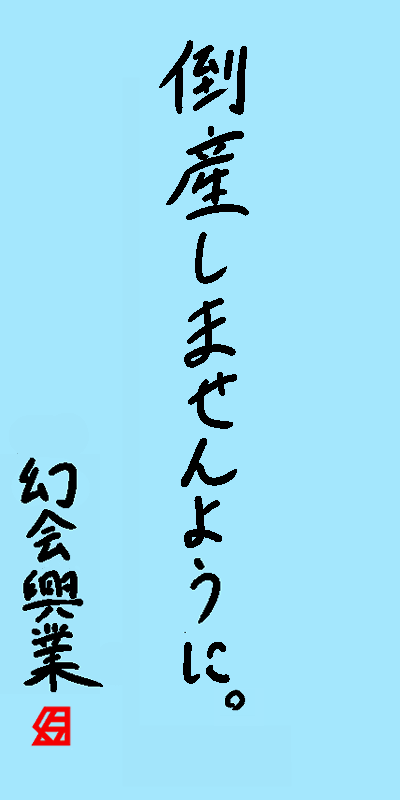 倒産しませんように。
幻会興業